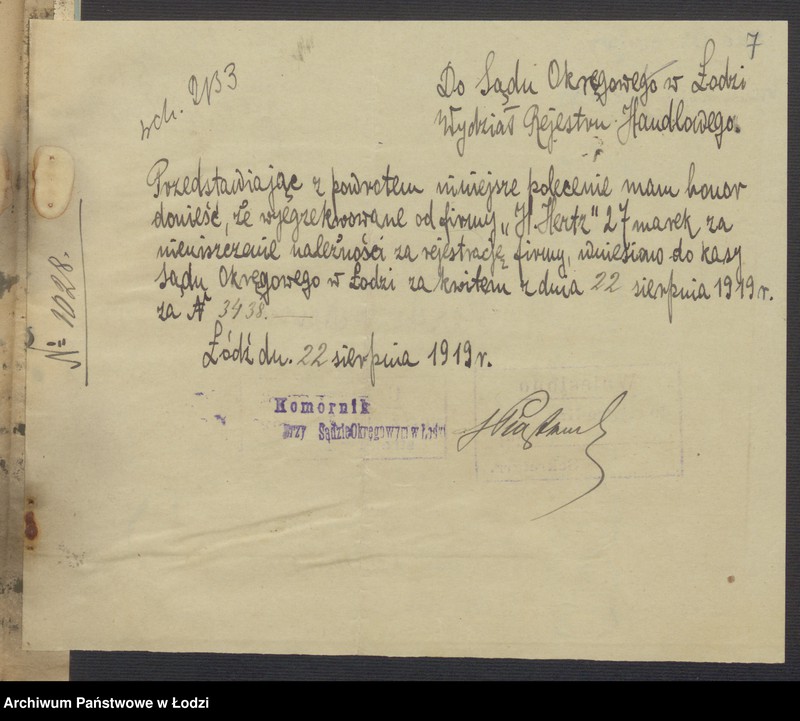 7
wch. 2133
Do Sądu Okręgowego w Łodzi
Wydział Rejestru Handlowego.
Przedstawiając z powrotem niniejsze polecenie mam honor
donieść, że wyegzekwowane od firmy „H. Hertz" 27 marek za
nieuiszczenie należności za rejestrację firmy, wniesiono do kasy
Sądu Okręgowego w Łodzi za kwitem z dnia 22 sierpnia 1919 r.
za № 3438.
Łódź dn. 22 sierpnia 1919 r.
№ 1028.
Komornik
przy Sądzie Okręgowym w Łodzi
Archiwum Państwowe w Łodzi